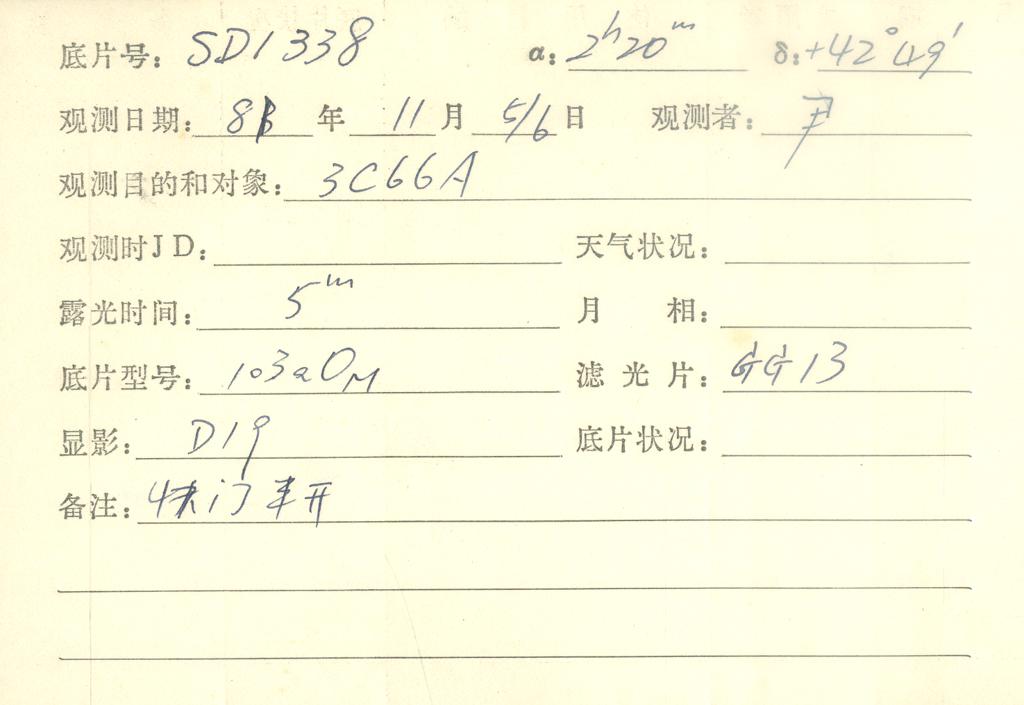 底片号: SD1338 α: 2ʰ20ᵐ δ: +42°49′
观测日期: 81 年 11 月 5/6 日 观测者: 尹
观测目的和对象: 3C66A
观测时JD: 天气状况:
露光时间: 5ᵐ 月 相:
底片型号: 103aOM 滤光片: GG13
显影: D19 底片状况:
备注: 快门未开